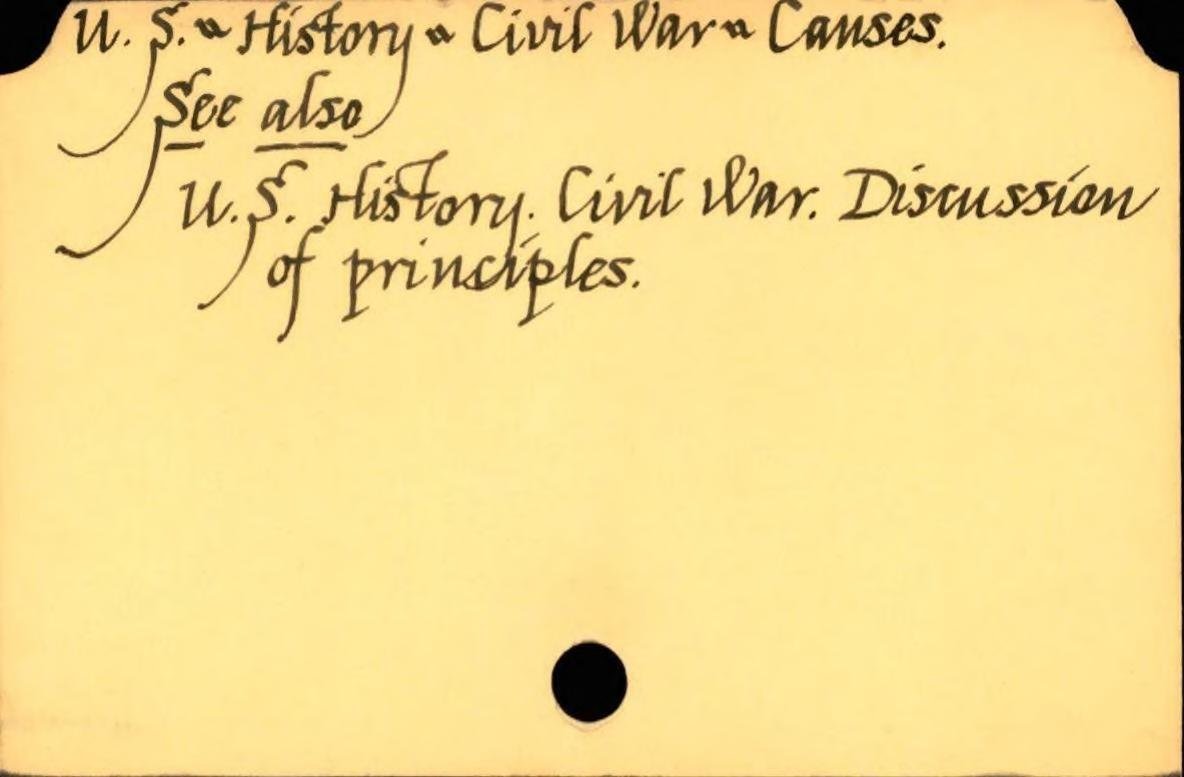 U. S. - History - Civil War - Causes.
See also
U. S. History. Civil War. Discussion
of principles.